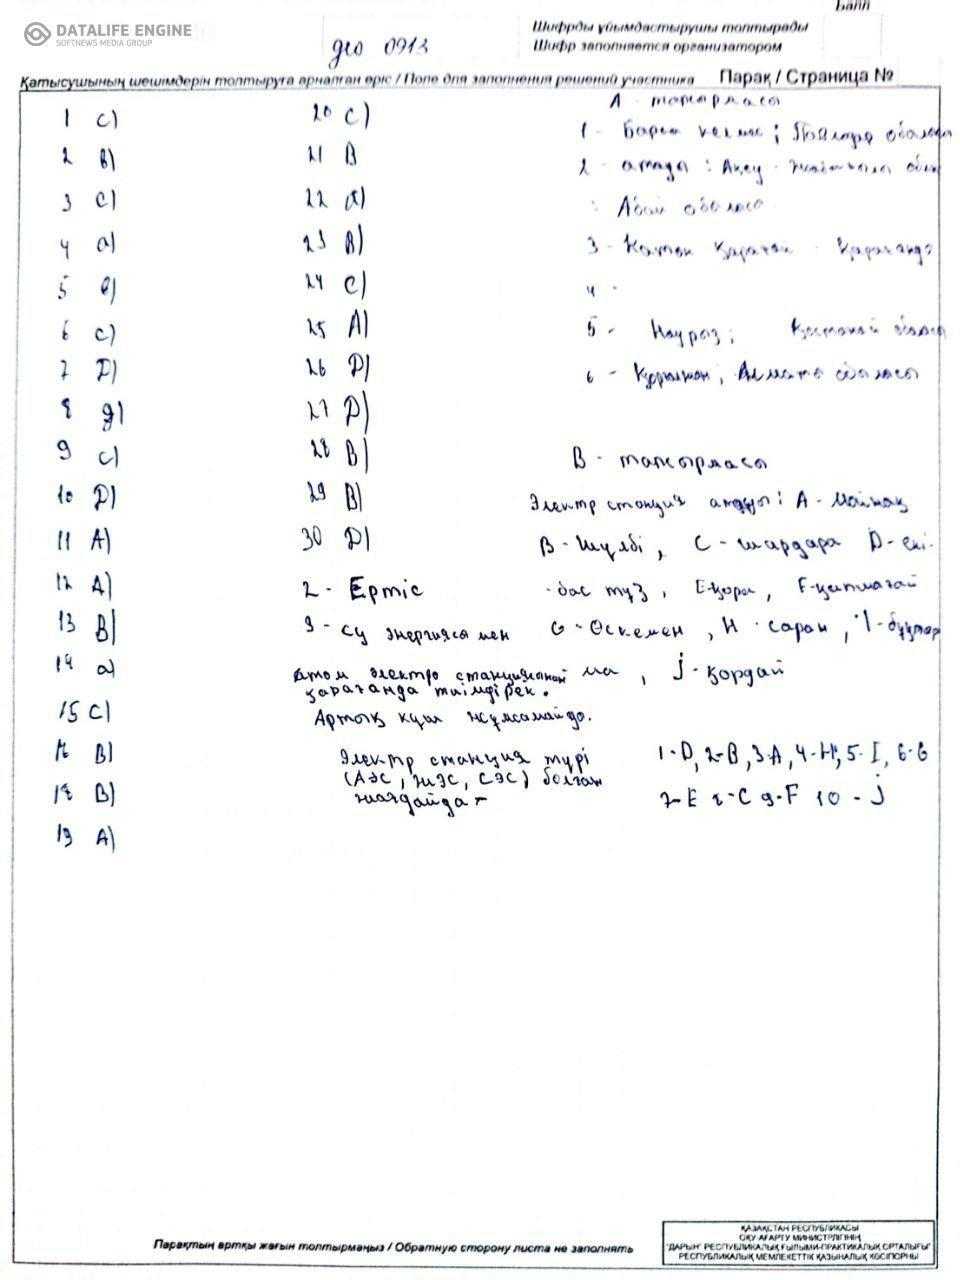 Балл
DATALIFE ENGINE
SOFTNEWS MEDIA GROUP
Шифрды ұйымдастырушы толтырады
Шифр заполняется организатором
geo 0913
Қатысушының шешімдерін толтыруға арналған өріс / Поле для заполнения решений участника
Парақ / Страница №
1 c)
2 в)
3 c)
4 a)
5
6 c)
7 D)
8 g)
9 c)
10 D)
11 A)
12 A)
13 B)
14 a)
15 C)
B)
18 B)
19 A)
20 C)
21 B
22
23 B)
24 C)
25 A)
26 D)
27 D)
28 B)
29 B)
30 D)
2 - Ертіс
3 - су энергиясы мен
атом электр станциясынан
қарағанда тиімдірек.
Артық күш жұмсамайды.
Электр станция түрі
(АЭС, ЖЭС, СЭС) болған
жағдайда -
A - тапсырмасы
1 - Барса келмес;
2 - атауы : Ақсу -
: Абай обласы
3 - Катон Қарағай - Қарағанды
4 -
5 - Наурыз; Қостанай
6 - Алматы обласы
B - тапсырмасы
Электр станция атауы: A - Мойнақ
B - Шүлбі, C - шардара D - екі-
-бас E- F-қапшағай
G - Өскемен, H - саран, I -
, j - қордай
1-D, 2-B, 3-A, 4-H, 5-I, 6-G
7-E 8-C 9-F 10 - J
Парақтың артқы жағын толтырмаңыз / Обратную сторону листа не заполнять
ҚАЗАҚСТАН РЕСПУБЛИКАСЫ
ОҚУ-АҒАРТУ МИНИСТРЛІГІНІҢ
"ДАРЫН" РЕСПУБЛИКАЛЫҚ ҒЫЛЫМИ-ПРАКТИКАЛЫҚ ОРТАЛЫҒЫ"
РЕСПУБЛИКАЛЫҚ МЕМЛЕКЕТТІК ҚАЗЫНАЛЫҚ КӘСІПОРНЫ